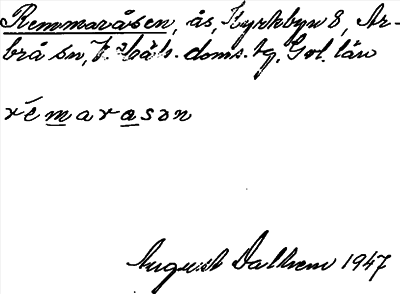 Remmaråsen, ås, Kyrkbyn 8, Ar-
brå sn, V. Häls. doms. tg. Gvl. län
rémarason
August Dalhem 1947